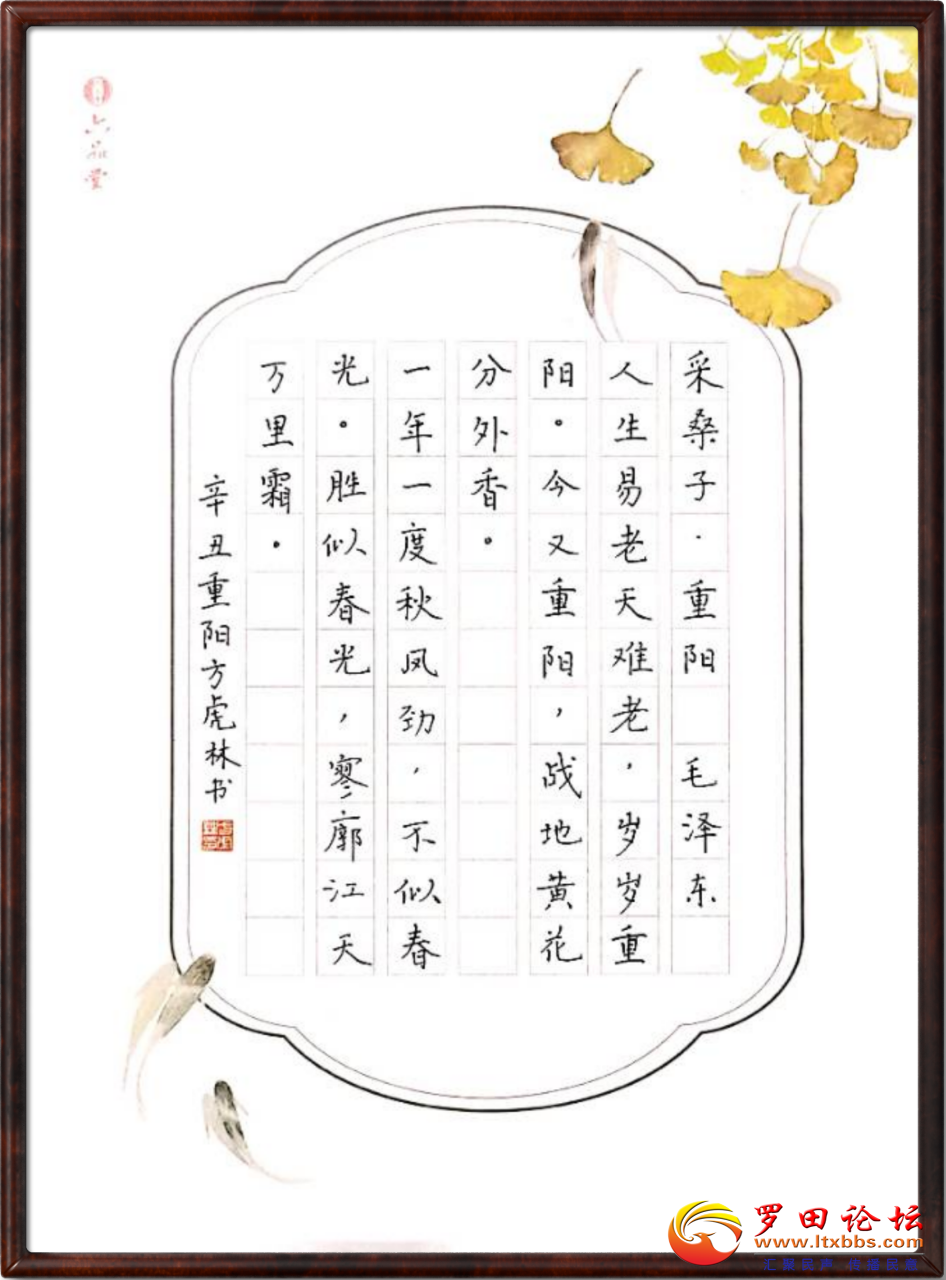 六品堂
采桑子·重阳 毛泽东
人生易老天难老，岁岁重
阳。今又重阳，战地黄花
分外香。
一年一度秋风劲，不似春
光。胜似春光，寥廓江天
万里霜。
辛丑重阳方虎林书
罗田论坛
www.ltxbbs.com